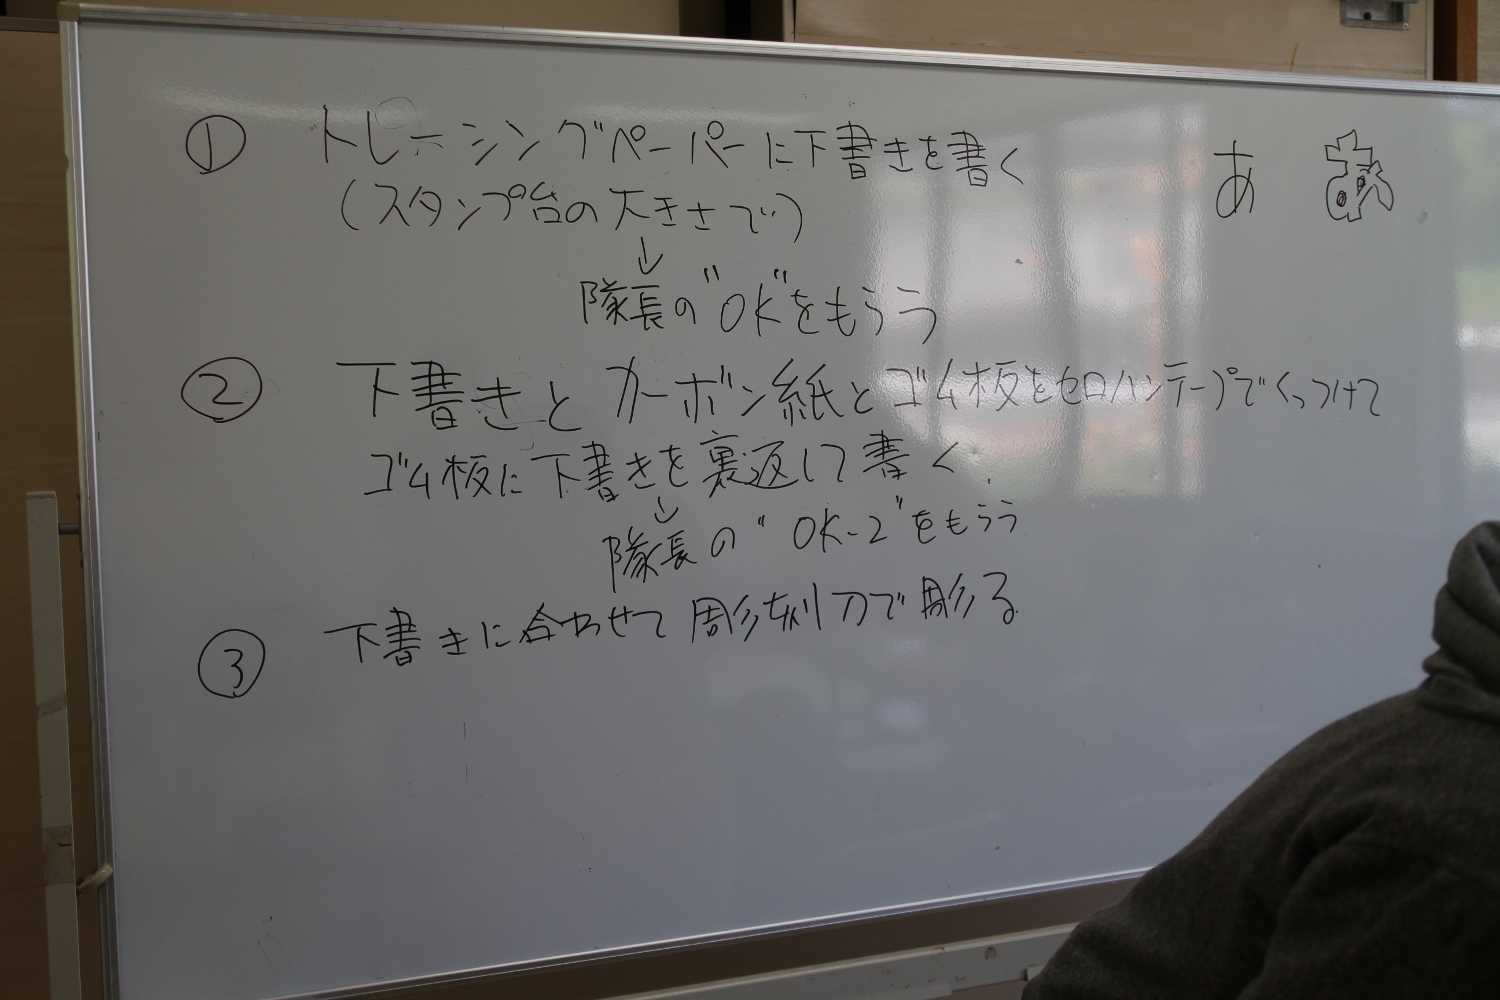 ① トレーシングペーパーに下書きを書く
(スタンプ台の大きさで)
↓
隊長の"OK"をもらう
② 下書きとカーボン紙とゴム板をセロハンテープでくっつけて
ゴム板に下書きを裏返して書く
↓
隊長の"OK-2"をもらう
③ 下書きに合わせて彫刻刀で彫る
あ あ